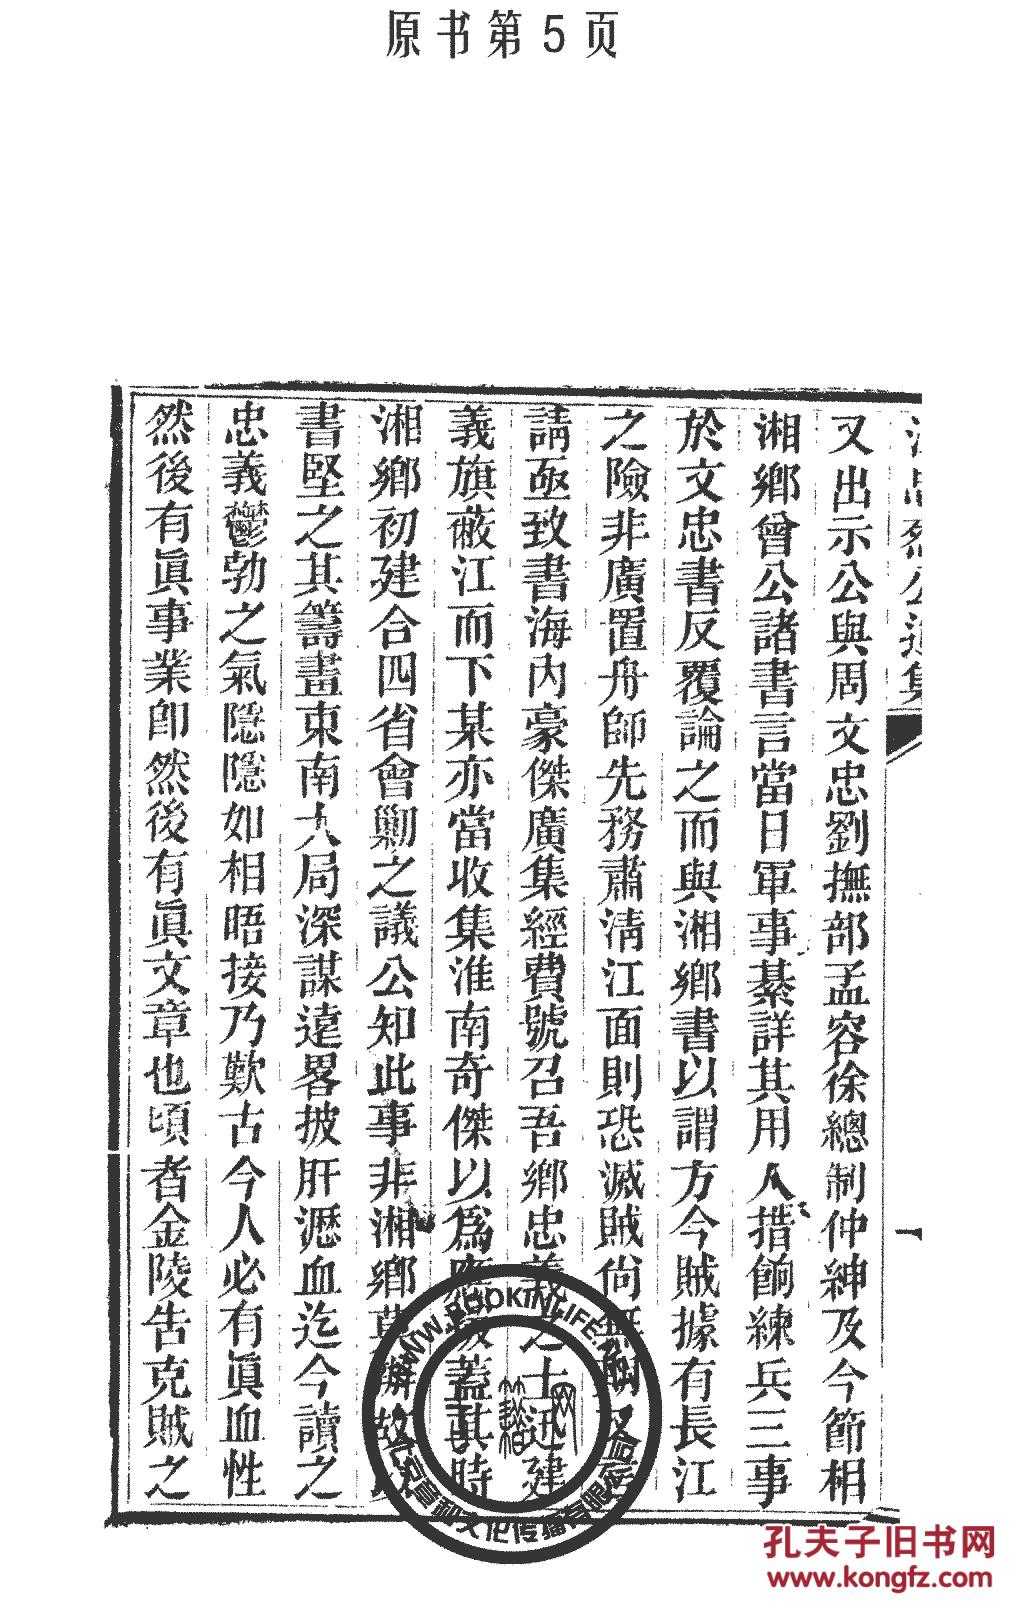 原书第5页
又出示公與周文忠劉撫部孟容徐總制仲紳及今節相
湘鄉曾公諸書言當日軍事綦詳其用人措餉練兵三事
於文忠書反覆論之而與湘鄉書以謂方今賊據有長江
之險非廣置舟師先務肅清江面則恐滅賊尙無期又
請亟致書海內豪傑廣集經費號召吾鄉忠義之士迅建
義旗蔽江而下某亦當收集淮南奇傑以爲應援蓋其時
湘鄉初建合四省會勦之議公知此事非湘鄉莫辦故
書堅之其籌畫東南大局深謀遠畧披肝瀝血迄今讀之
忠義鬱勃之氣隱隱如相晤接乃歎古今人必有眞血性
然後有眞事業卽然後有眞文章也頃者金陵告克賊之
WWW.BOOKINLIFE.NET
孔夫子旧书网
www.kongfz.com